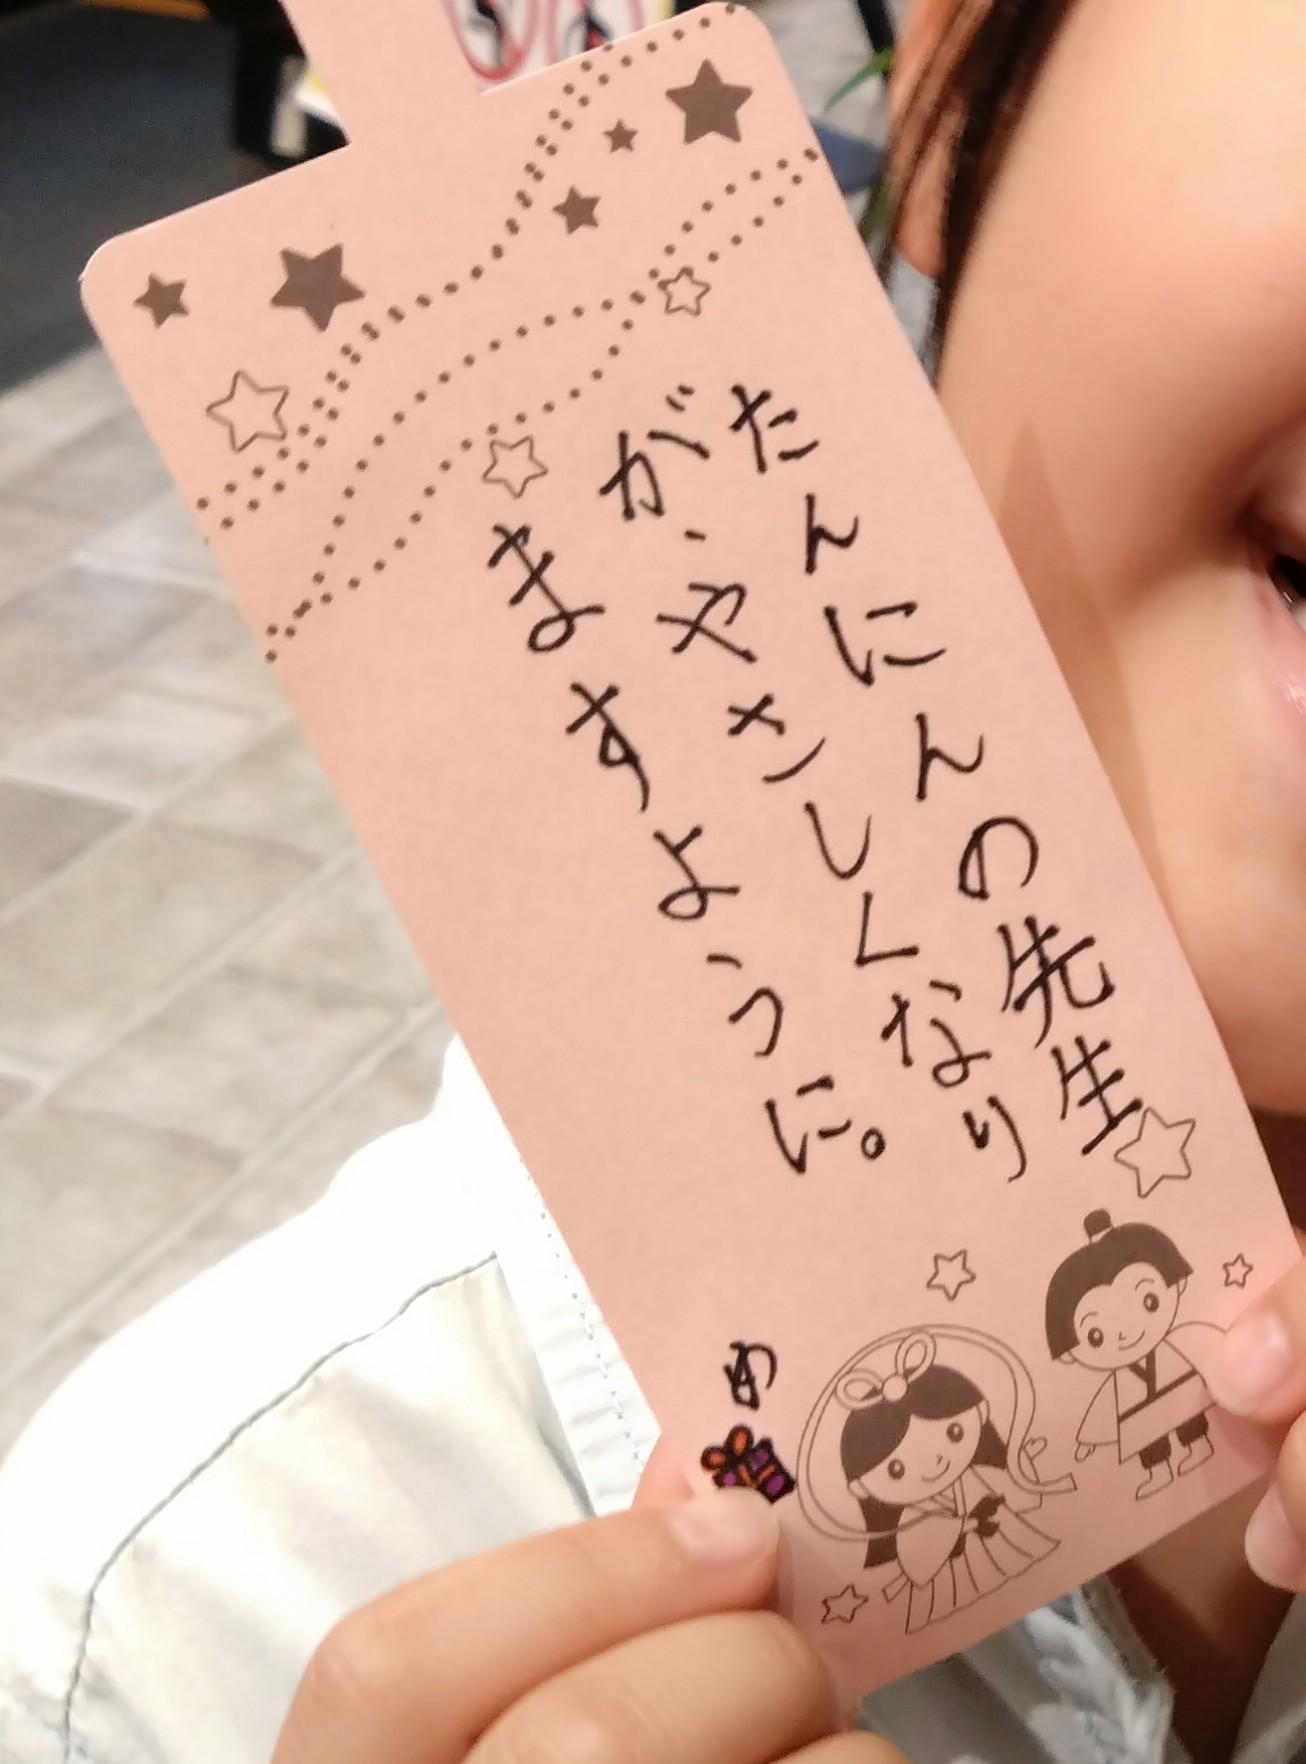 たんにんの先生
が、やさしくなり
ますように。
め